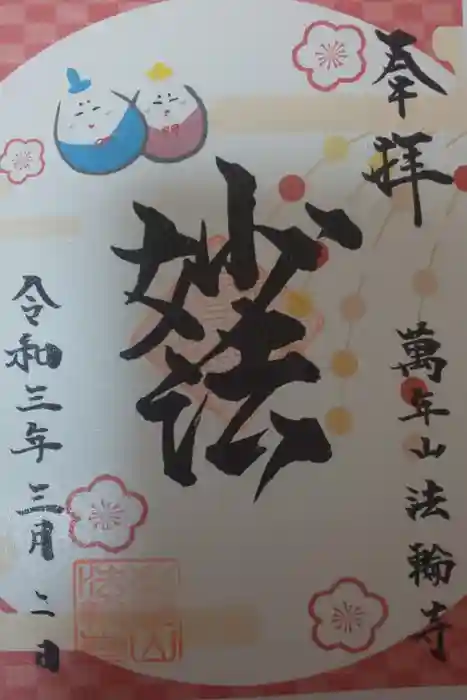 奉拝
萬年山法輪寺
妙法
令和三年三月二日